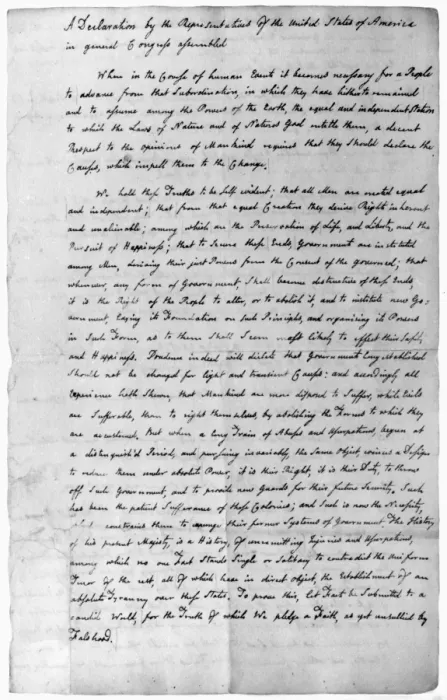 A Declaration by the Representatives of the United States of America
in general Congress assembled
When in the Course of human Events it becomes necessary for a People
to advance from that Subordination, in which they have hitherto remained
and to assume among the Powers of the Earth, the equal and independent Station
to which the Laws of Nature and of Nature's God entitle them, a decent
Respect to the opinions of Mankind requires that they Should declare the
Causes, which impell them to the Change.
We hold these Truths to be self evident; that all Men are created equal
and independent; that from that equal Creation they derive Rights inherent
and unalienable; among which are the Preservation of Life, and Liberty, and the
Pursuit of Happiness; that to secure these Ends, Governments are instituted
among Men, deriving their just Powers from the Consent of the governed; that
whenever, any form of Government, Shall become destructive of these Ends,
it is the Right of the People to alter, or to abolish it, and to institute new Go-
vernment, laying its Foundation on Such Principles, and organizing its Powers
in Such Form, as to them Shall Seem most likely to effect their Safety
and Happiness. Prudence indeed will dictate that Governments long established
Should not be changed for light and transient Causes: and accordingly all
Experience hath Shewn, that Mankind are more disposed to Suffer, while Evils
are Sufferable, than to right themselves, by abolishing the Forms to which they
are accustomed. But when a long Train of Abuses and Usurpations, begun at
a distinguish'd Period, and pursuing invariably, the Same object, evinces a Design
to reduce them under absolute Power, it is their Right, it is their Duty, to throw
off Such Government, and to provide new Guards for their future Security. Such
has been the patient Sufferance of these Colonies; and Such is now the Necessity,
which constrains them to expunge their former Systems of Government. The History
of his present Majesty, is a History, of unremitting Injuries and Usurpations,
among which no one Fact Stands Single or Solitary to contradict the Uniform
Tenor of the rest, all of which have in direct object, the Establishment of an
absolute Tyranny over these States. To prove this, let Facts be Submitted to a
candid World, for the Truth of which We pledge a Faith, as yet unsullied by
Falshood.